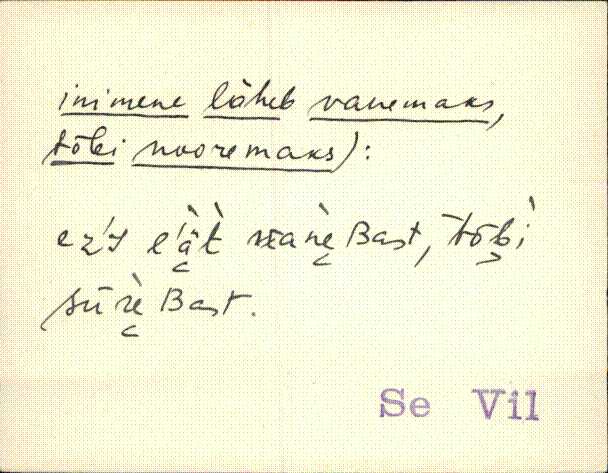 inimene läheb vanemaks,
tõbi nooremaks):
ez's l'ä̀t̀ vanèBast, tõbì
sūrèBast.
Se Vil